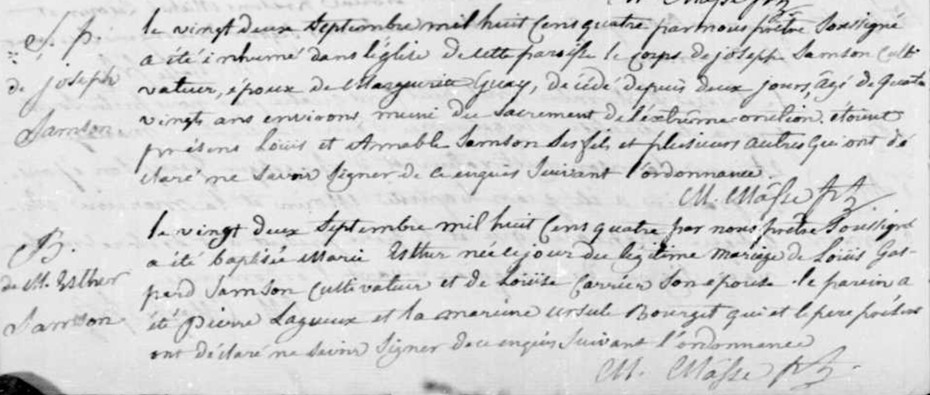 S. p.
de joseph
Samson
le vingt deux Septembre mil huit Cens quatre par nous prêtre Soussigné
a été inhumé dans l'église de cette paroisse le corps de joseph Samson Culti
vateur, époux de Marguerite Guay, décédé depuis deux jours, âgé de quatre
vingts ans environs muni du Sacrement de l'extrême onction. étoient
présens Louis et Amable Samson Ses fils et plusieurs autres qui ont dé
claré ne Savoir Signer de ce enquis Suivant l'ordonnance.
M. Mâsse ptr
B.
de M. Esther
Samson
le vingt deux Septembre mil huit Cens quatre par nous prêtre Soussigné
a été baptisée Marie Esther née le jour du légitime mariage de Loüis Gas-
perd Samson Cultivateur et de Loüise Carrier Son épouse. le parein a
été Pierre Lagueux et la mareine ursule Bourget qui et le pere présens
ont déclaré ne Savoir Signer de ce enquis Suivant l'ordonnance
M. Mâsse ptr.